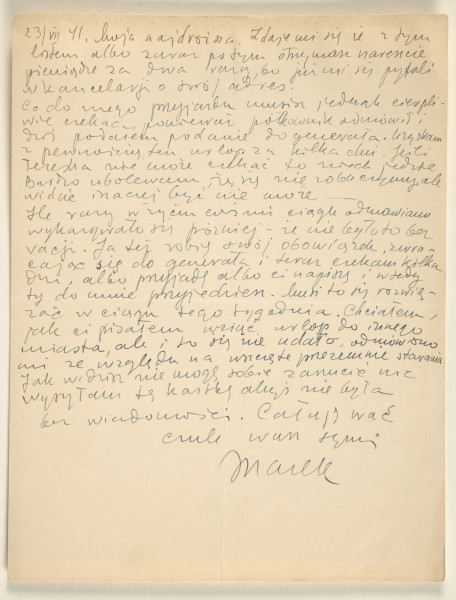 23/VII 41. Moja najdroższa. Zdaje mi się że z tym
listem albo zaraz po tym otrzymasz nareszcie
pieniądze za dwa razy, bo już mi się pytali
w kancelarji o twój adres.
Co do mego przyjazdu musisz jednak cierpli-
wie czekać, ponieważ pułkownik odmówił i
dziś podałem podanie do generała. Uzyskam
z pewnością ten urlop za kilka dni. Jeśli
Tereska nie może czekać to niech jedzie
Bardzo ubolewam, że się nie zobaczymy, ale
widać inaczej być nie może —
Ile razy w życiu coś mi ciągle odmawiano
wykazywało się później - że nie było to bez
racji. Ja też robię swój obowiązek, zwra-
cając się do generała i teraz czekam kilka
dni, albo przyjadę albo ci napiszę i wtedy
ty do mnie przyjedziesz. Musi to się rozwią-
zać w ciągu tego tygodnia. Chciałem,
jak ci pisałem wziąć urlop do innego
miasta, ale i to się nie udało, odmówiono
mi ze względu na wszczęte przezemnie starania
Jak widzisz nie mogę sobie zarzucić nic
wysyłam tę kartkę abyś nie była
bez wiadomości. Całuję was
czule wasz
Marek